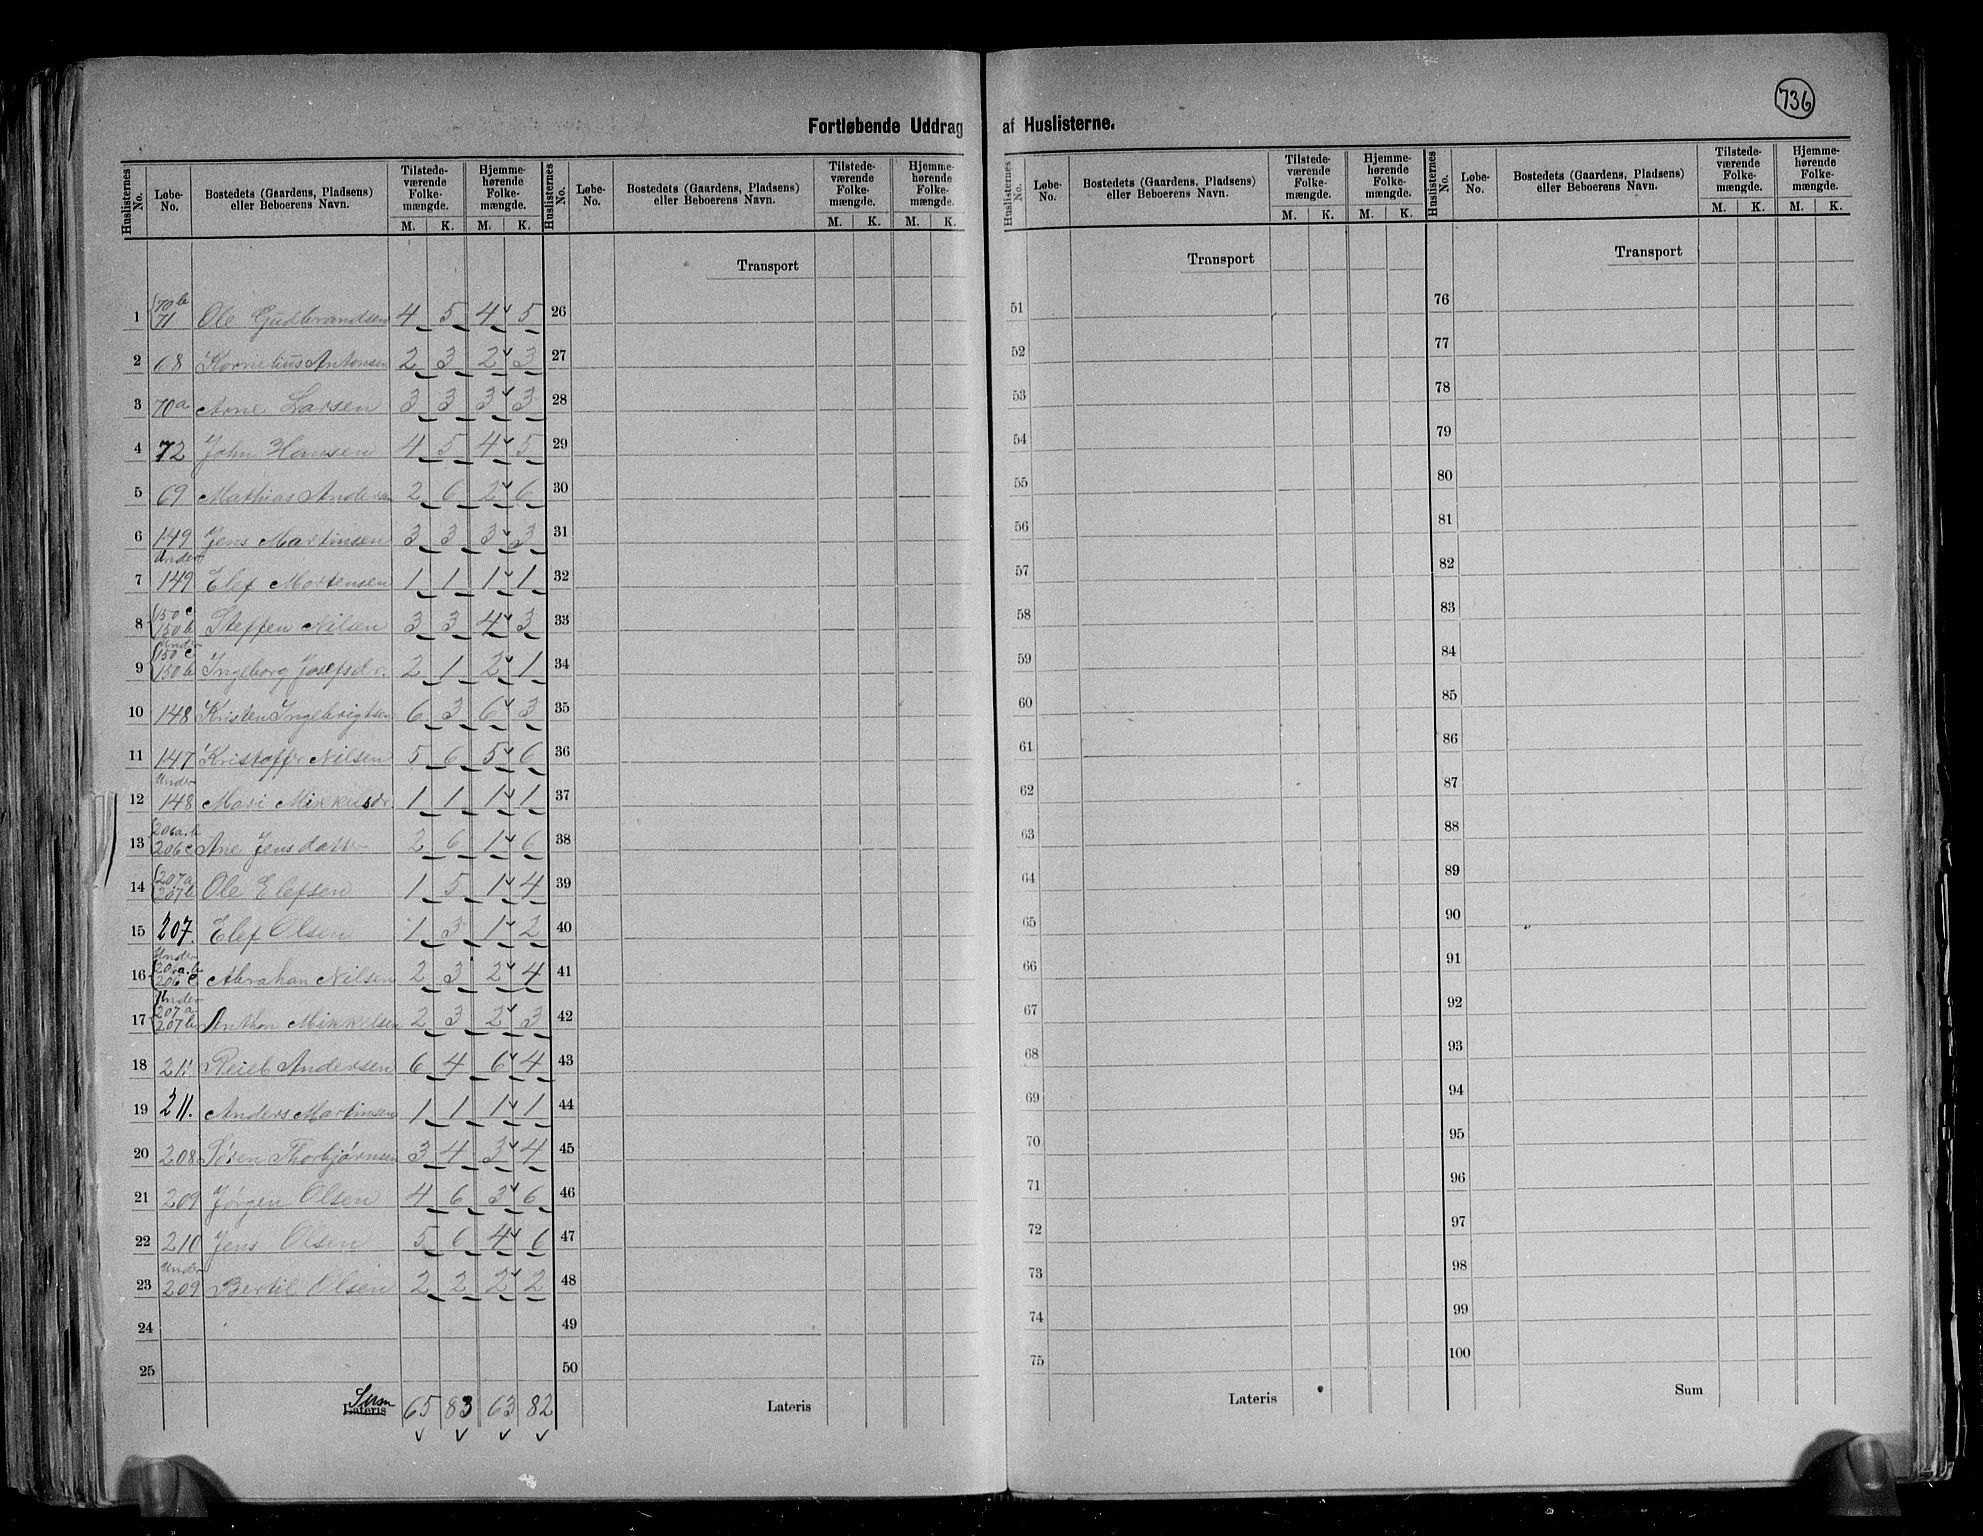 736
Fortløbende Uddrag af Huslisterne.
Huslisternes No. | Løbe-No. | Bostedets (Gaardens, Pladsens) eller Beboerens Navn. | Tilstedeværende Folkemængde. M. K. | Hjemmehørende Folkemængde. M. K.
Huslisternes No. | Løbe-No. | Bostedets (Gaardens, Pladsens) eller Beboerens Navn. | Tilstedeværende Folkemængde. M. K. | Hjemmehørende Folkemængde. M. K.
Huslisternes No. | Løbe-No. | Bostedets (Gaardens, Pladsens) eller Beboerens Navn. | Tilstedeværende Folkemængde. M. K. | Hjemmehørende Folkemængde. M. K.
Huslisternes No. | Løbe-No. | Bostedets (Gaardens, Pladsens) eller Beboerens Navn. | Tilstedeværende Folkemængde. M. K. | Hjemmehørende Folkemængde. M. K.
Transport Transport Transport
1 70b 71 Ole Gudbrandsen 4 5 4 5 26 51 76
2 68 Kornelius Antonsen 2 3 2 3 27 52 77
3 70a Arne Larsen 3 3 3 3 28 53 78
4 72 John Hansen 4 5 4 5 29 54 79
5 69 Mathias Andersen 2 6 2 6 30 55 80
6 149 Jens Martinsen 3 3 3 3 31 56 81
7 Under 149 Elef Mortensen 1 1 1 1 32 57 82
8 150c 150b Steffen Nilsen 3 3 4 3 33 58 83
9 Under 150c 150b Ingeborg Josefsdr. 2 1 2 1 34 59 84
10 148 Kristen Ingebrigtsen 6 3 6 3 35 60 85
11 147 Kristoffer Nilsen 5 6 5 6 36 61 86
12 Under 148 Mari Mikkelsdr 1 1 1 1 37 62 87
13 206a.b 206c Ane Jensdatter 2 6 1 6 38 63 88
14 207a 207b Ole Elefsen 1 5 1 4 39 64 89
15 207. Elef Olsen 1 3 1 2 40 65 90
16 Under 206a.b 206c Abrahan Nilsen 2 3 2 4 41 66 91
17 Under 207a 207b Anthon Mikkelsen 2 3 2 3 42 67 92
18 211 Reiel Andersen 6 4 6 4 43 68 93
19 211. Anders Martinsen 1 1 1 1 44 69 94
20 208 Søren Thorbjørnsen 3 4 3 4 45 70 95
21 209 Jørgen Olsen 4 6 3 6 46 71 96
22 210 Jens Olsen 5 6 4 6 47 72 97
23 Under 209 Bertil Olsen 2 2 2 2 48 73 98
24 49 74 99
25 50 75 100
Sum Lateris 65 83 63 82 Lateris Lateris Sum